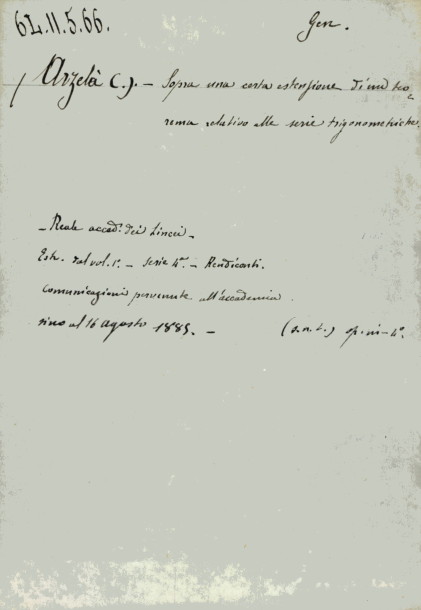 6L.11.5.66.
Gen.
Arzelà C.). — Sopra una certa estensione di un teo=
rema relativo alle serie trigonometriche.
— Reale accad. dei Lincei —
Estr. dal vol. 1°. — serie 4a. — Rendiconti.
comunicazioni pervenute all'accademia
sino al 16 agosto 1885. — (s.n.t.) op. in-4°.